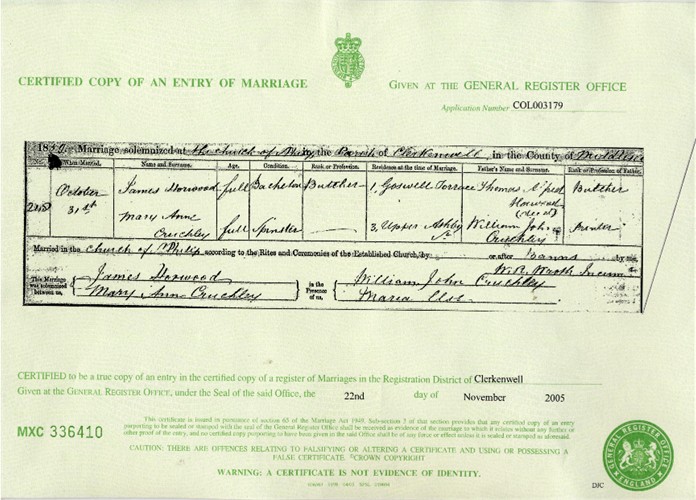 CERTIFIED COPY OF AN ENTRY OF MARRIAGE
GIVEN AT THE GENERAL REGISTER OFFICE
Application Number COL003179
Marriage solemnized at the church of the Parish of Clerkenwell in the County of
No. When Married. Name and Surname. Age. Condition. Rank or Profession. Residence at the time of Marriage. Father's Name and Surname. Rank or Profession of Father.
October 31st James full Bachelor Butcher 1, Goswell Terrace Thomas Butcher
Mary Anne Cruchley full Spinster — 3, Upper Ashby St William John Cruchley
Married in the Church of St Philip according to the Rites and Ceremonies of the Established Church, by or after Banns by me,
This Marriage was solemnized between us, James in the Presence of us, William John Cruchley
Mary Ann Cruchley Maria
CERTIFIED to be a true copy of an entry in the certified copy of a register of Marriages in the Registration District of Clerkenwell
Given at the GENERAL REGISTER OFFICE, under the Seal of the said Office, the 22nd day of November 2005
MXC 336410
This certificate is issued in pursuance of section 65 of the Marriage Act 1949. Sub-section 3 of that section provides that any certified copy of an entry
purporting to be sealed or stamped with the seal of the General Register Office shall be received as evidence of the marriage to which it relates without any further or
other proof of the entry, and no certified copy purporting to have been given in the said Office shall be of any force or effect unless it is sealed or stamped as aforesaid.
CAUTION: THERE ARE OFFENCES RELATING TO FALSIFYING OR ALTERING A CERTIFICATE AND USING OR POSSESSING A
FALSE CERTIFICATE. ©CROWN COPYRIGHT
WARNING: A CERTIFICATE IS NOT EVIDENCE OF IDENTITY.
GENERAL REGISTER OFFICE
ENGLAND